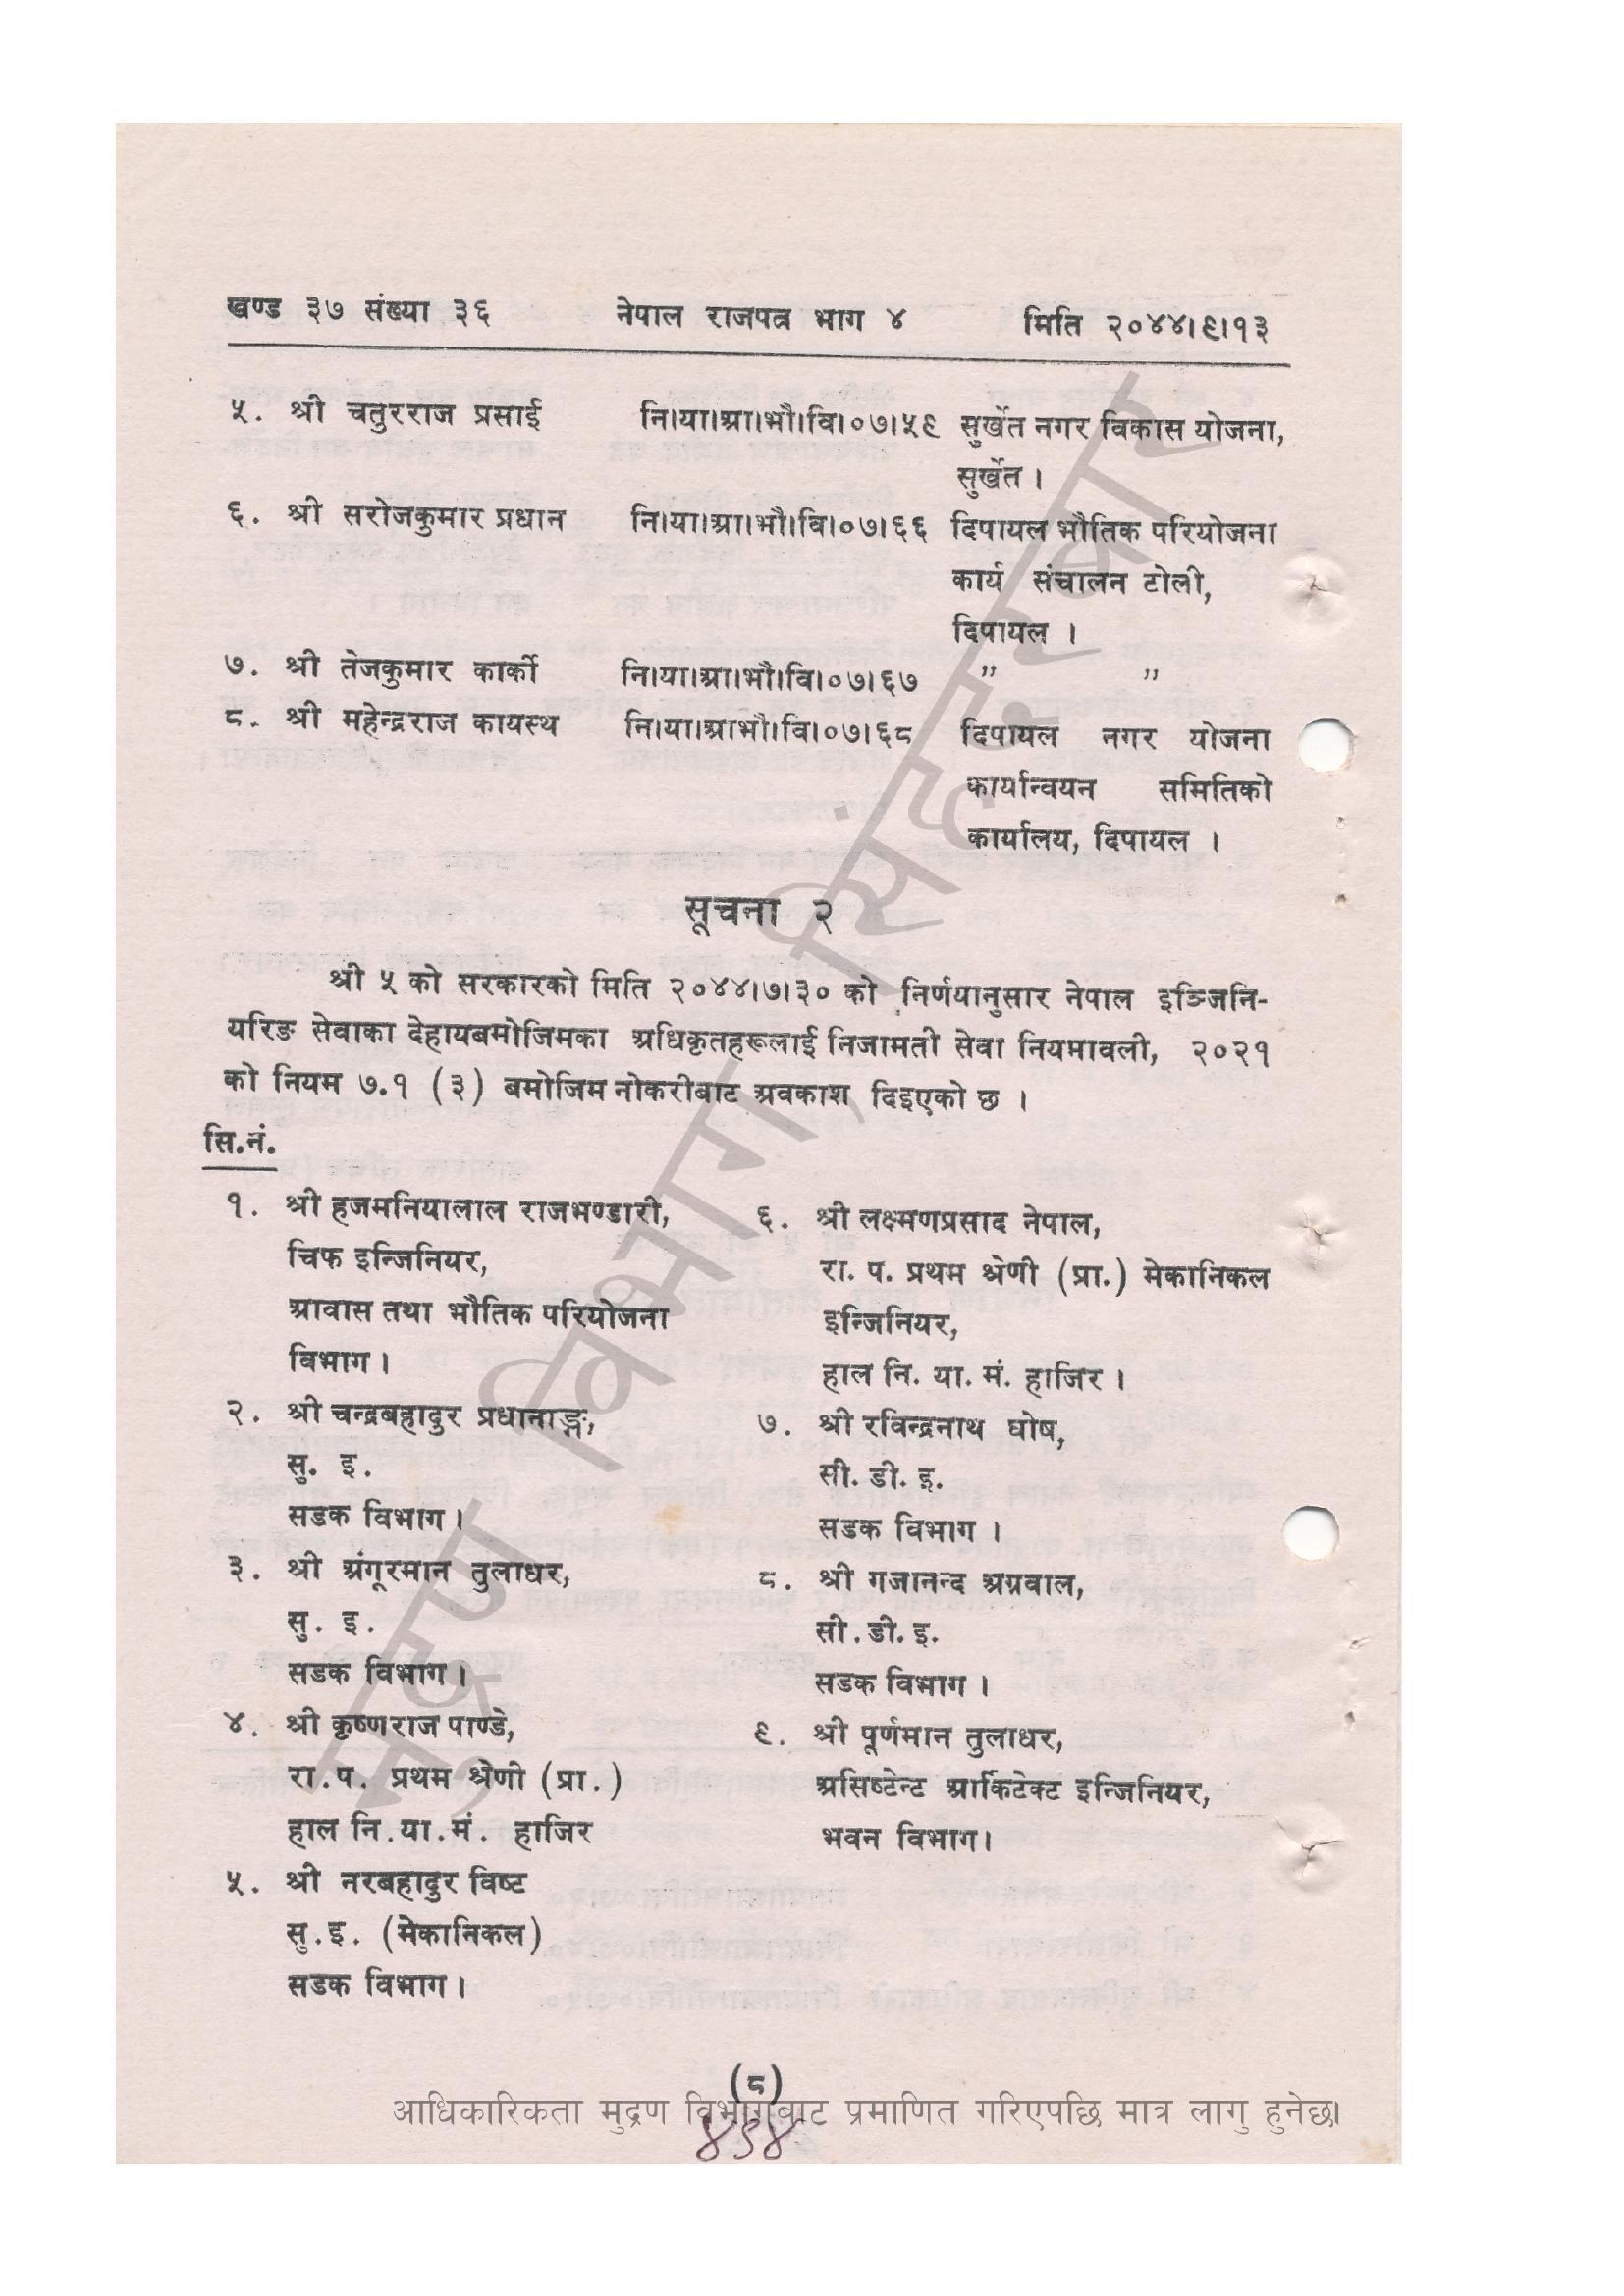 खण्ड ३७ संख्या ३६ नेपाल राजपत्र भाग ४ मिति २०४४।९।१३
५. श्री चतुरराज प्रसाई नि।या।आ।भौ।वि।०७।५९ सुर्खेत नगर विकास योजना,
सुर्खेत ।
६. श्री सरोजकुमार प्रधान नि।या।आ।भौ।वि।०७।६६ दिपायल भौतिक परियोजना
कार्य संचालन टोली,
दिपायल ।
७. श्री तेजकुमार कार्की नि।या।आ।भौ।वि।०७।६७ " "
८. श्री महेन्द्रराज कायस्थ नि।या।आ।भौ।वि।०७।६८ दिपायल नगर योजना
कार्यान्वयन समितिको
कार्यालय, दिपायल ।
सूचना २
श्री ५ को सरकारको मिति २०४४।७।३० को निर्णयानुसार नेपाल इञ्जिनि-
यरिङ सेवाका देहायबमोजिमका अधिकृतहरूलाई निजामती सेवा नियमावली, २०२१
को नियम ७.१ (३) बमोजिम नोकरीबाट अवकाश दिइएको छ ।
सि.नं.
१. श्री हजमनियालाल राजभण्डारी,
चिफ इन्जिनियर,
आवास तथा भौतिक परियोजना
विभाग ।
२. श्री चन्द्रबहादुर प्रधानाङ्ग,
सु. इ.
सडक विभाग ।
३. श्री अंगूरमान तुलाधर,
सु. इ.
सडक विभाग ।
४. श्री कृष्णराज पाण्डे,
रा.प. प्रथम श्रेणी (प्रा.)
हाल नि.या.मं. हाजिर
५. श्री नरबहादुर विष्ट
सु.इ. (मेकानिकल)
सडक विभाग ।
६. श्री लक्ष्मणप्रसाद नेपाल,
रा. प. प्रथम श्रेणी (प्रा.) मेकानिकल
इन्जिनियर,
हाल नि. या. मं. हाजिर ।
७. श्री रविन्द्रनाथ घोष,
सी. डी. इ.
सडक विभाग ।
८. श्री गजानन्द अग्रवाल,
सी. डी. इ.
सडक विभाग ।
९. श्री पूर्णमान तुलाधर,
असिष्टेन्ट आर्किटेक्ट इन्जिनियर,
भवन विभाग।
(८)
आधिकारिकता मुद्रण विभागबाट प्रमाणित गरिएपछि मात्र लागु हुनेछ।
४९४
मुद्रण विभाग, सिंहदरबार